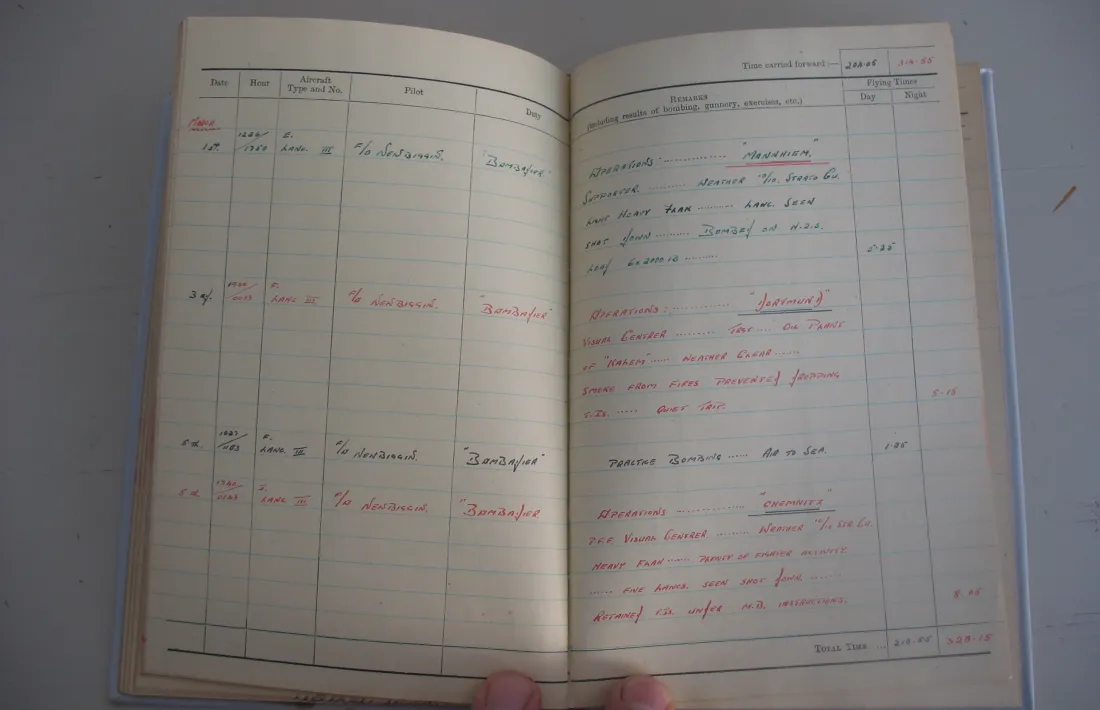 Time carried forward :— 203·05 314·55
Date Hour Aircraft Type and No. Pilot Duty
REMARKS (including results of bombing, gunnery, exercises, etc.) Flying Times Day Night
MARCH
1ST. E. LANC III F/O NEWBIGGIN. "BOMBAdIER."
OPERATIONS: .............. "MANNHIEM."
SUPPORTER ......... WEATHER 10/10. STRATO CU.
HEAVY FLAK ......... LANC. SEEN
SHOT dOWN ......... BOMBEd ON H.2.S.
LOAd 6x2000.lB ......... 5·25
3 Rd. F. LANC III F/O NEWBIGGIN. "BOMBAdIER"
OPERATIONS: ............. "dORTMUNd"
VISUAL CENTRER ......... TRGT .... OIL PLANT
OF "KALEM" ...... WEATHER CLEAR ......
SMOKE FROM FIRES PREVENTEd dROPPING
T.I.s. ..... QUIET TRIP. 5·15
5 th. F. LANC III F/O NEWBIGGIN. "BOMBAdIER"
PRACTICE BOMBING ...... AIR TO SEA.
5 th. LANC III F/O NEWBIGGIN. "BOMBAdIER
OPERATIONS .............. "CHEMNITZ"
P.F.F. VISUAL CENTRER ......... WEATHER 10/10 STR. CU.
HEAVY FLAK ....... PLENTY OF FIGHTER ACTIVITY.
...... FIVE LANCS. SEEN SHOT dOWN ........
RETAINEd T.I.s. UNdER M.B. INSTRUCTIONS. 8·05
TOTAL TIME ... 328·15